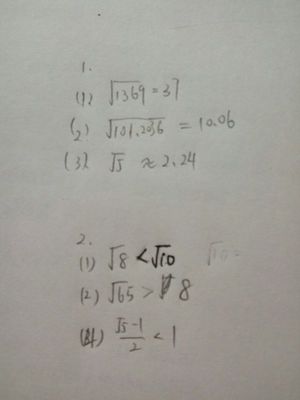 1.
(1) √1369 = 37
(2) √101.2036 = 10.06
(3) √5 ≈ 2.24
2.
(1) √8 < √10 √10
(2) √65 > 8
(4) (√5-1)/2 < 1